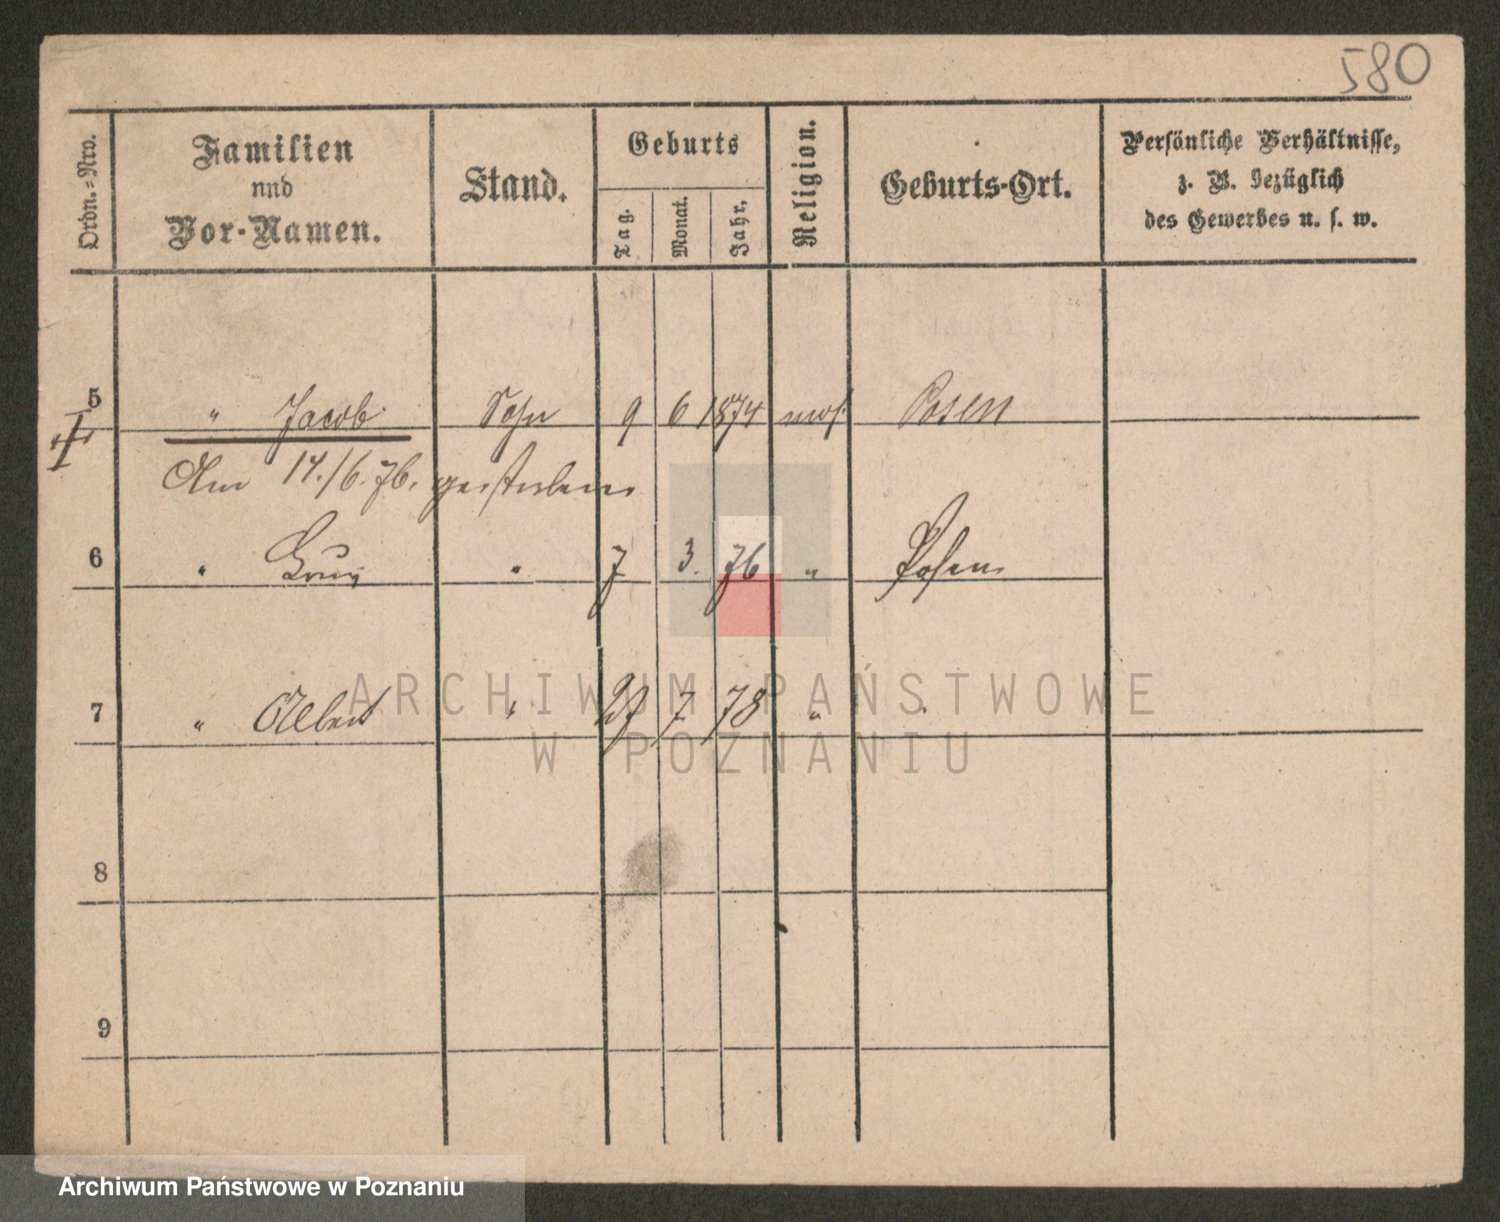 580
Ordn.-Nro. Familien und Vor-Namen. Stand. Geburts Tag. Monat. Jahr. Religion. Geburts-Ort. Persönliche Verhältnisse, z. B. bezüglich des Gewerbes u. s. w.
5 " Jacob Sohn 9 6 1874 mos. Posen
Am 14./6. 76. gestorben
6 " " 7 3. 76 " Posen
7 " Albert " 27 7 78 " "
8
9
ARCHIWUM PAŃSTWOWE
W POZNANIU
Archiwum Państwowe w Poznaniu